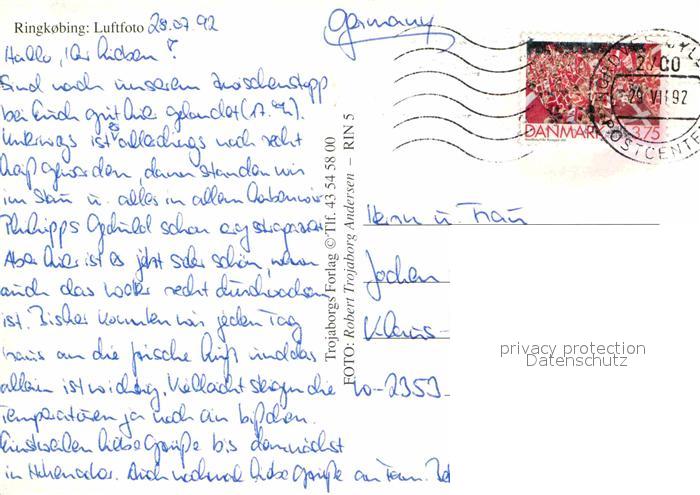 Ringkøbing: Luftfoto 28.07.92
Hallo, Ihr Lieben!
Sind nach unserem Zwischenstopp
bei Euch gut hier gelandet (17.
Unterwegs ist es allerdings noch recht
heiß geworden, dann standen wir
im Stau u. alles in allem haben wir
Philipps Geduld schon arg strapaziert.
Aber hier ist es jetzt sehr schön, wenn
auch das Wetter recht durchwachsen
ist. Bisher konnten wir jeden Tag
raus an die frische Luft und das
allein ist wichtig. Vielleicht steigen die
Temperaturen ja noch ein bißchen.
Einstweilen liebe Grüße bis demnächst
in Auch nochmals liebe Grüße an
Trojaborgs Forlag © Tlf. 43 54 58 00
FOTO: Robert Trojaborg Andersen – RIN 5
Germany
DANMARK 3.75
2/00
29 VII 92
POSTCENTER
Herrn u. Frau
Jochen
Klaus-
W-2353
privacy protection
Datenschutz